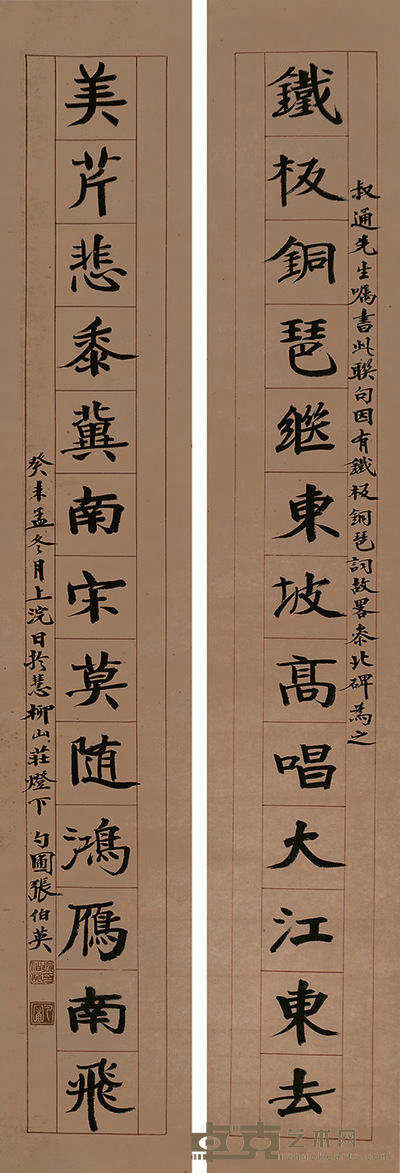 鐵板銅琶继東坡高唱大江東去
叔通先生嘱書此聯句因有鐵板銅琶詞故畧泰北碑為之
美芹悲黍冀南宋莫随鴻雁南飛
癸未孟冬月上浣日於慧柳山莊燈下 勺圃張伯英
卓克艺术网